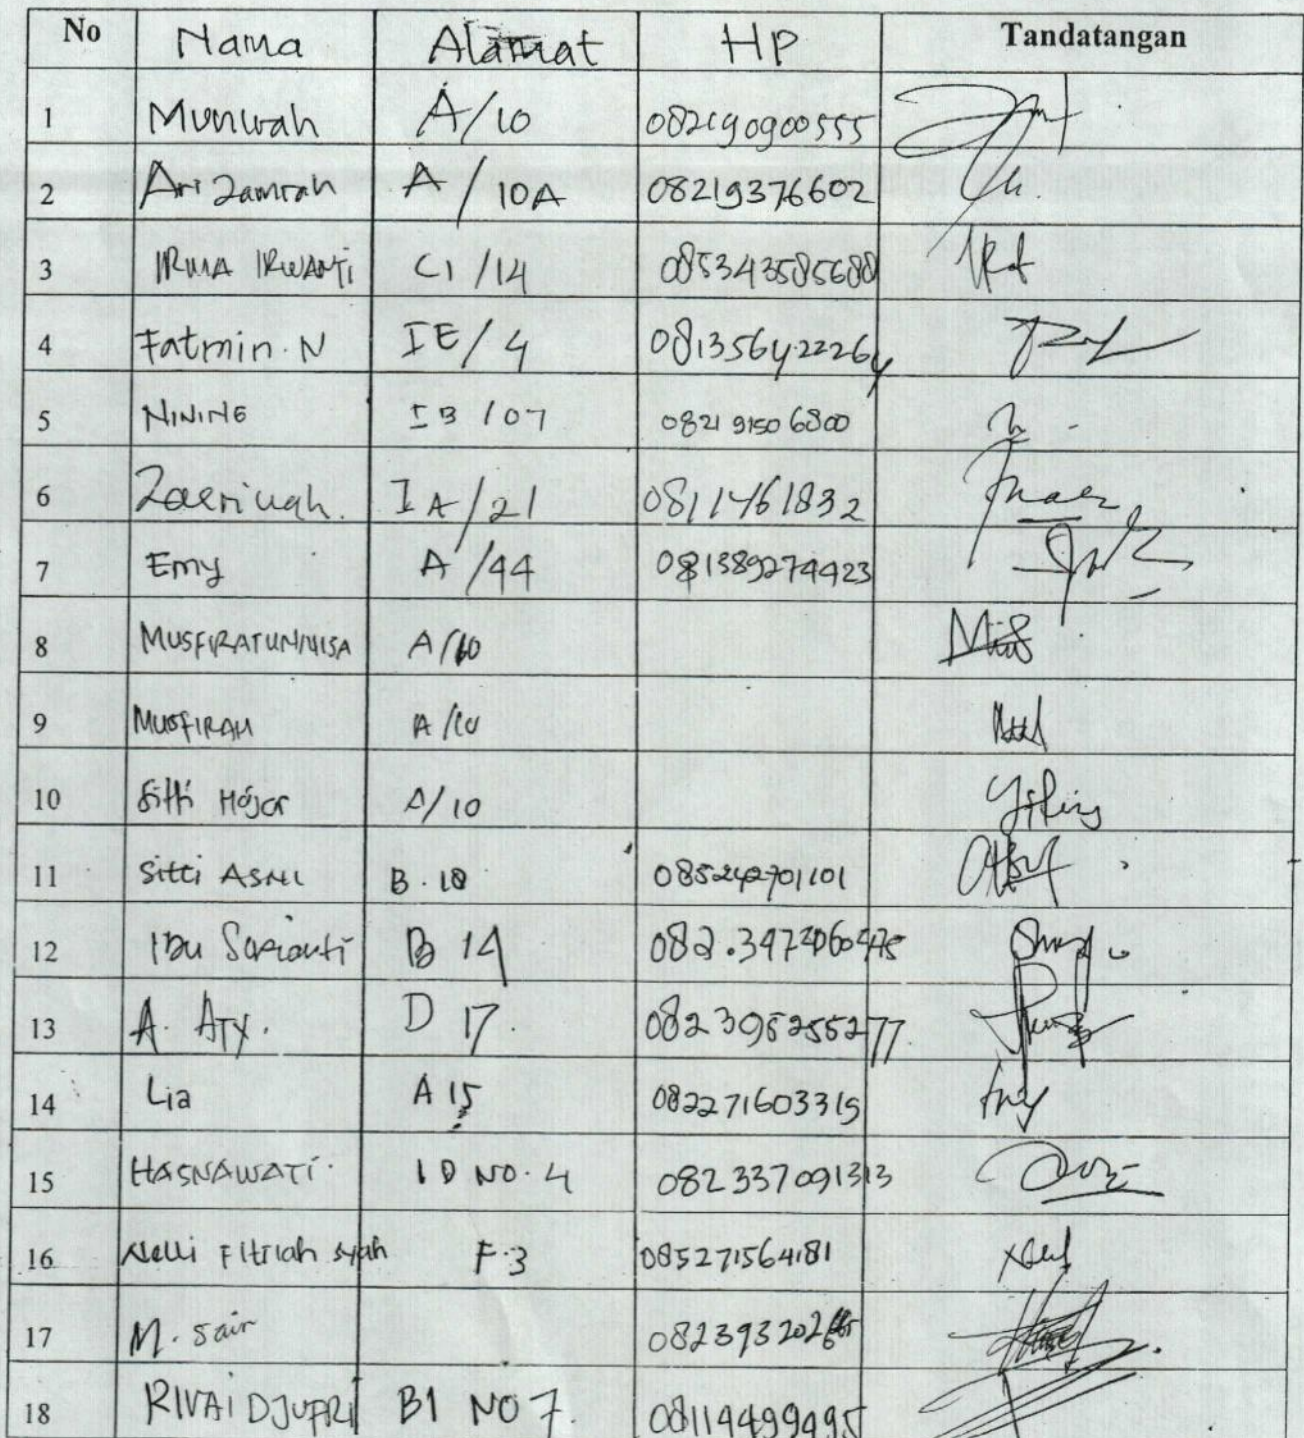 No Nama Alamat HP Tandatangan
1 Munirah A/10 082190900555
2 Ari Zamrah A/10A 08219376602
3 IRMA IRWANTI C1/14 085343585688
4 Fatmin. N IE/4 081356422264
5 NINING IB/07 0821 9150 6800
6 Zaerinah. IA/21 0811461832
7 Emy A/44 081389274423
8 MUSFIRATUNNISA A/10
9 MUSFIRAH A/10
10 Sitti Hajar A/10
11 Sitti ASNI B.18 085242701101
12 Ibu Sarianti B 14
13 A. ATY. D 17. 082395255277
14 Lia A 15 082271603315
15 HASNAWATI. 1D NO. 4 082337091313
16 Nelli Fitriah syah F.3 085271564181
17 M. Sair
18 RIVAI DJUFRI B1 NO 7. 08114499495